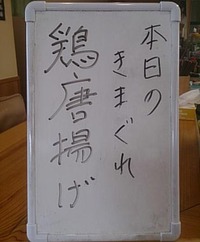 本日の
きまぐれ
鶏唐揚げ